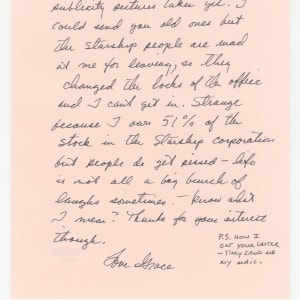 publicity pictures taken yet. I
could send you old ones but
the starship people are mad
at me for leaving, so they
changed the locks of the office
and I can't get in. Strange
because I own 51% of the
stock in the Starship corporation
but people do get pissed – life
is not all a big bunch of
laughs sometimes. – know what
I mean? Thanks for your interest
though.
Love Grace
P.S. HOW I
GOT YOUR LETTER
– THEY SEND ME
MY MAIL.